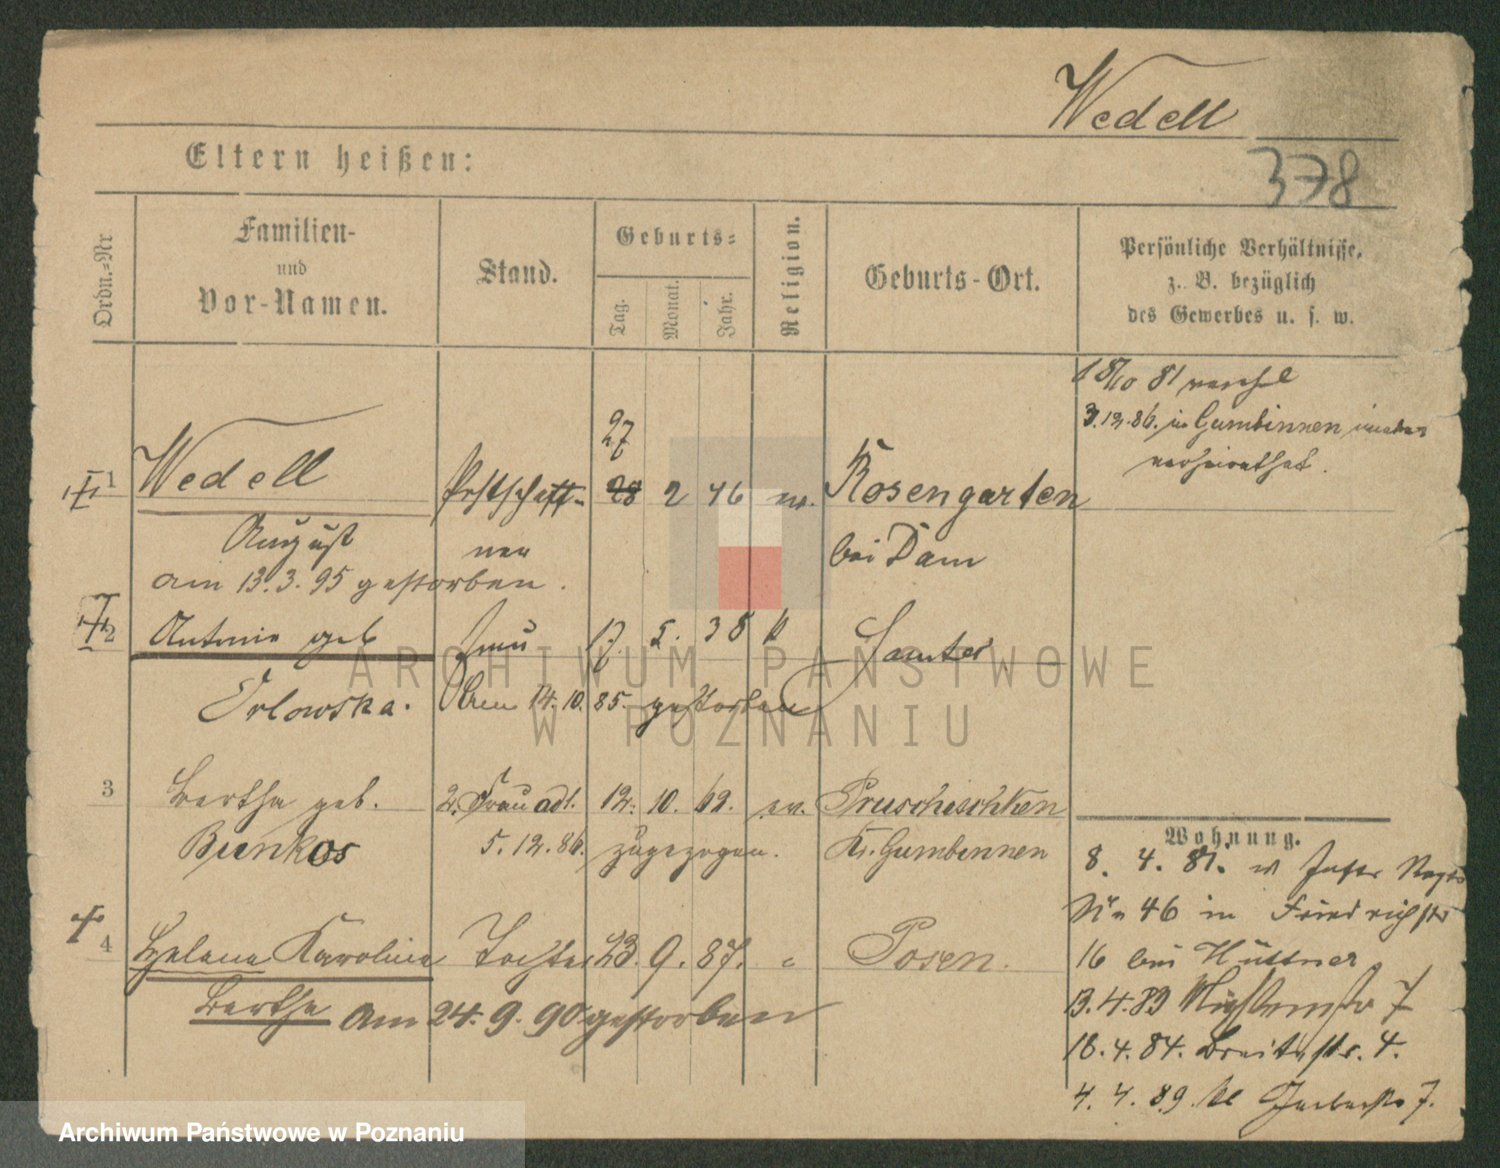 Wedell
Eltern heißen:
378
Ordn.=Nr
Familien-
und
Vor-Namen.
Stand.
Geburts=
Tag.
Monat.
Jahr.
Religion.
Geburts-Ort.
Persönliche Verhältnisse,
z. B. bezüglich
des Gewerbes u. s. w.
81
3.12.86. in Gumbinnen wieder
verheirathet.
27
1 Wedell Postschaff- 28 2 46 ev. Rosengarten
August ner bei Dam
am 13.3.95 gestorben.
2 Antonie geb Frau 17. 5. 38 k Samter
Orlowska. Am 14.10.85. gestorben
3 Bertha geb. 2. Frau adl. 12. 10. 62. ev. Pruschischken
Bunkos 5.12.86. zugezogen. Kr. Gumbinnen
Wohnung.
8. 4. 81. v
No 46 in Friedrichstr
4 Helene Karoline Tochter 23. 9. 87. " Posen.
16 bei Hüttner
Bertha am 24.9.90 gestorben
13.4.83 7
18.4.84. Breitestr. 4.
4. 4. 89. Kl Gerberstr 7.
ARCHIWUM PAŃSTWOWE
W POZNANIU
Archiwum Państwowe w Poznaniu